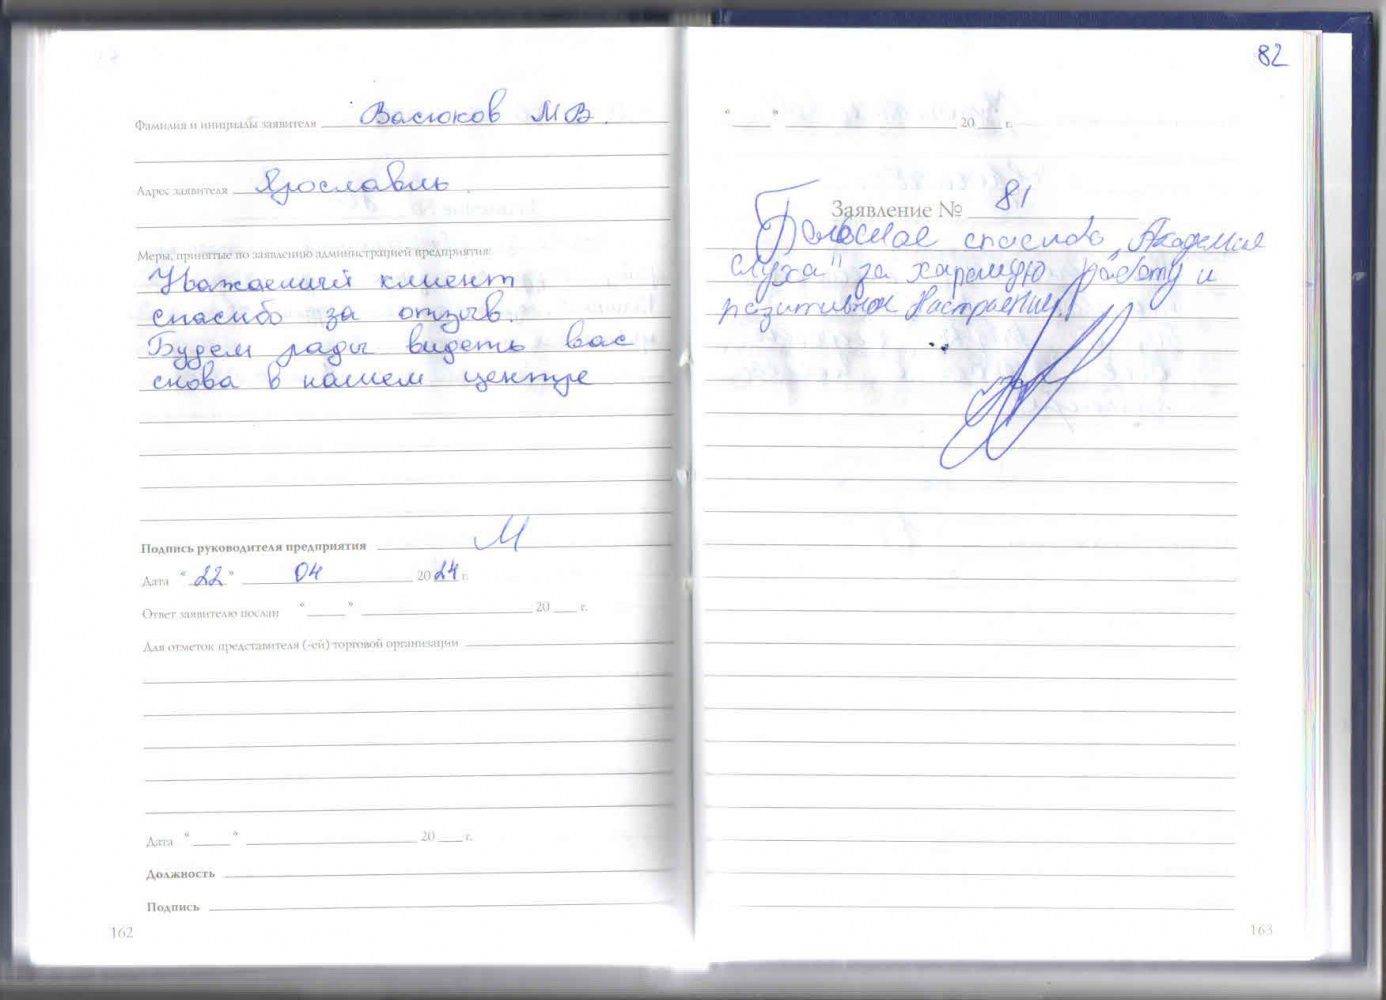 Фамилия и инициалы заявителя Васюков МВ.
Адрес заявителя Ярославль.
Меры, принятые по заявлению администрацией предприятия:
Уважаемый клиент
спасибо за отзыв.
Будем рады видеть вас
снова в нашем центре
Подпись руководителя предприятия
Дата "22" 04 2024 г.
Ответ заявителю послан "___" ___ 20___ г.
Для отметок представителя (-ей) торговой организации
Дата "___" ___ 20___ г.
Должность
Подпись
162
82
"___" ___ 20___ г.
Заявление № 81
Большое спасибо „Академие
слуха" за хорошую работу и
позитивное настроение.
163